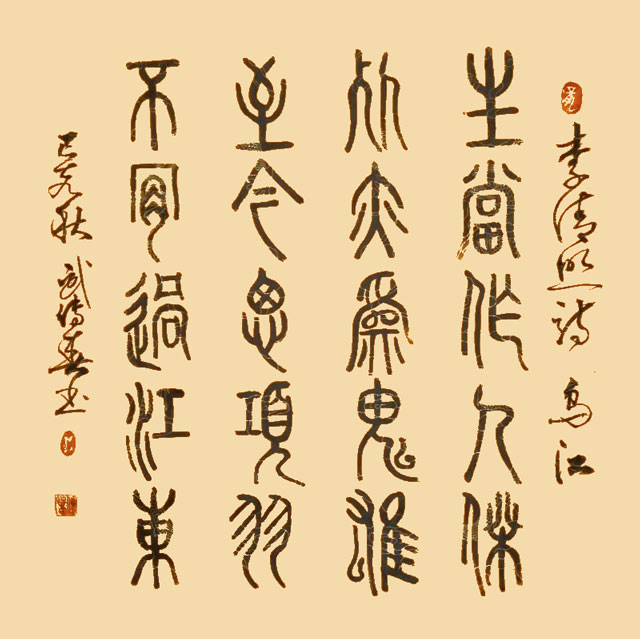 李清照詩 烏江
生當作人傑
死亦爲鬼雄
至今思項羽
不肯過江東
己亥秋 武春书